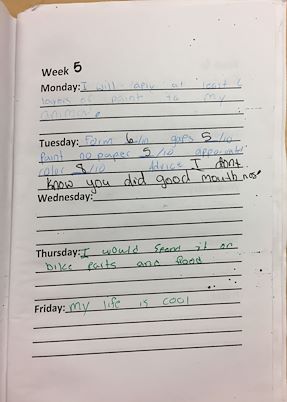 Week 5
Monday: I will aply at least 2
layers of paint to my
animal.
Tuesday: Form 6/10 gaps 5/10
Paint no paper 5/10
color 8/10 Advice I dont
know you did good mouth nose
Wednesday:
Thursday: I would spend it on
bike parts and food
Friday: my life is cool